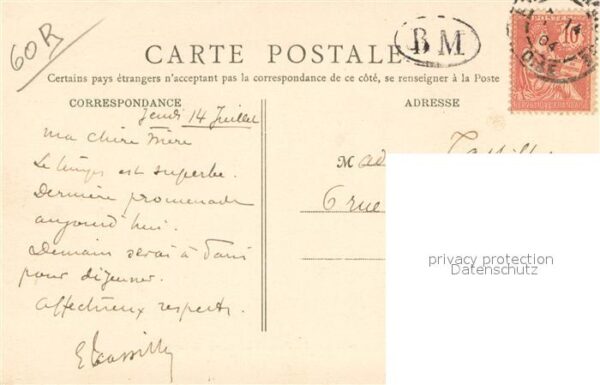 60R
CARTE POSTALE
BM
POSTES
10
04
OISE
RÉPUBLIQUE FRANÇAISE
Certains pays étrangers n'acceptant pas la correspondance de ce côté, se renseigner à la Poste
CORRESPONDANCE
ADRESSE
Jeudi 14 Juillet
Ma chère Mère
Le temps est superbe.
Dernière promenade
aujourd'hui.
Demain serai à Paris
pour déjeuner.
Affectueux respects.
E Tassilly
Mad Tassilly
6 rue
privacy protection
Datenschutz